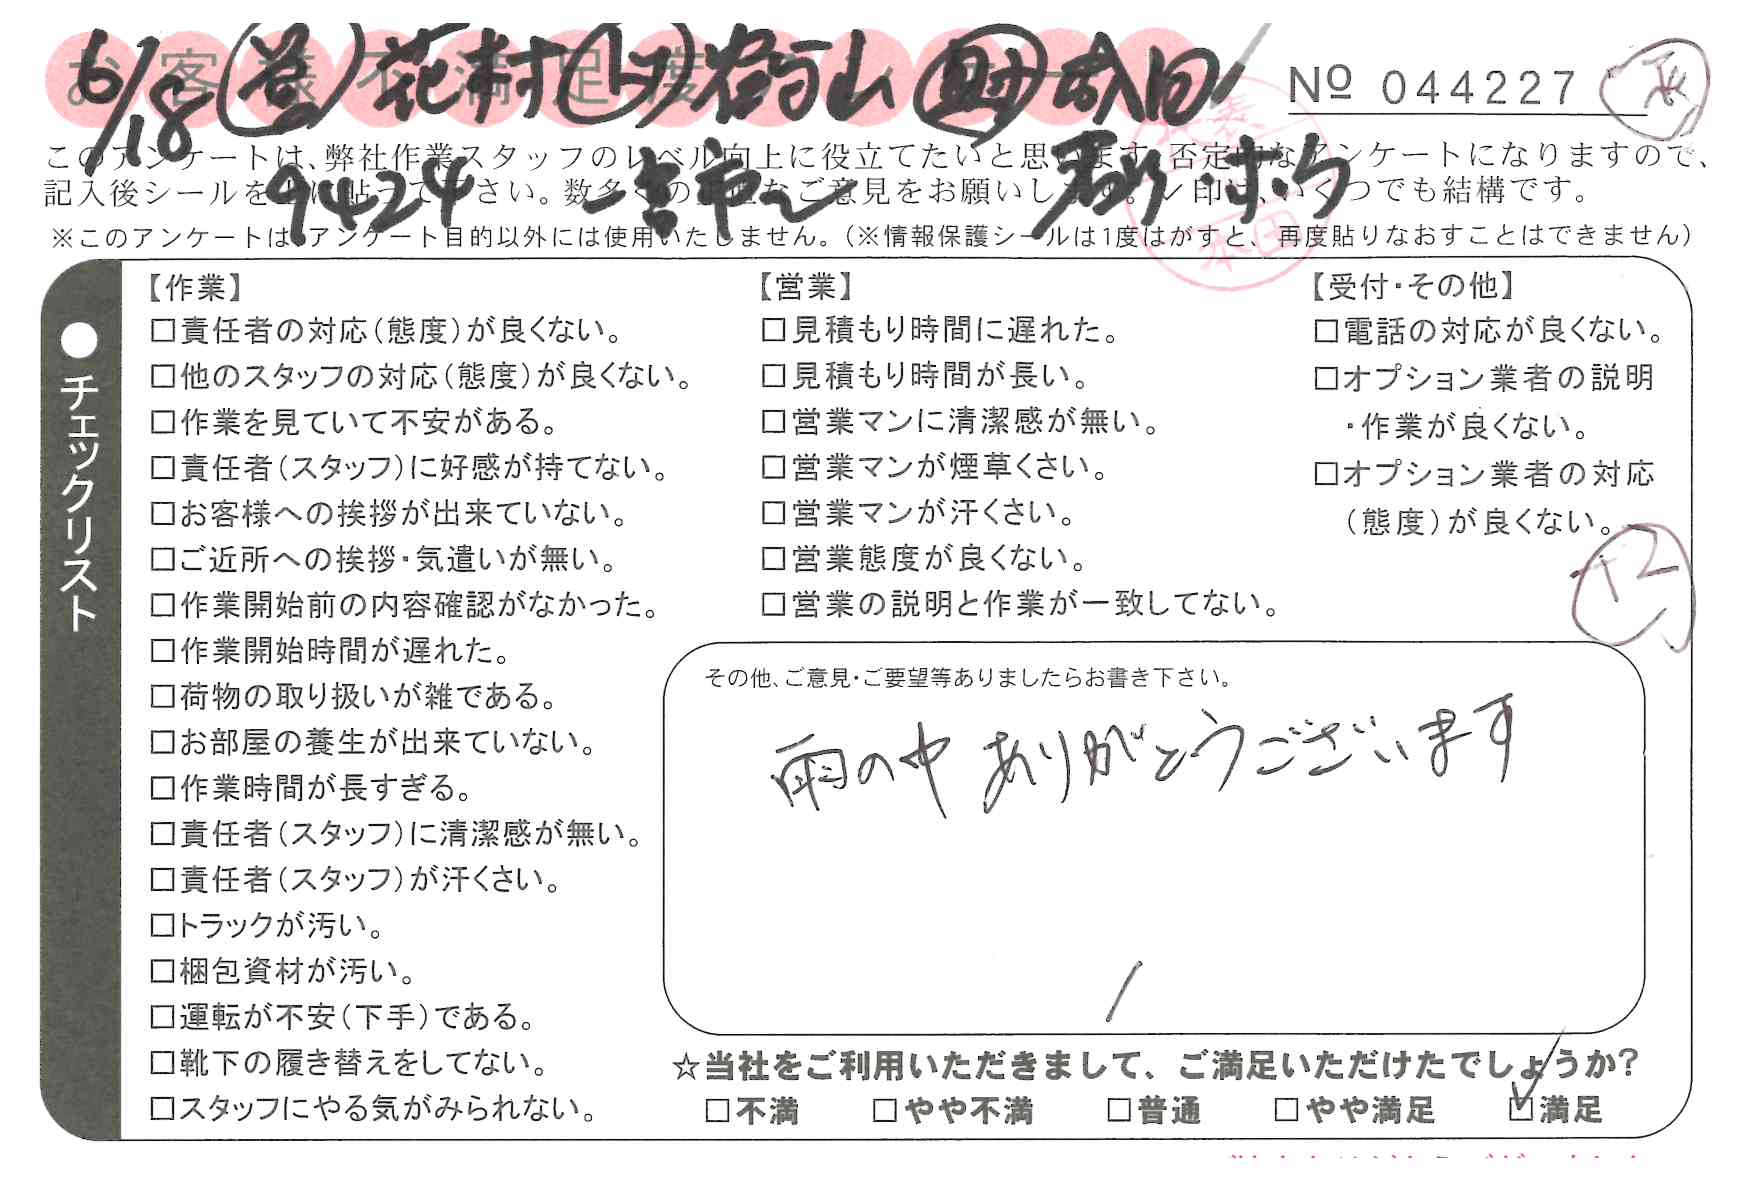 6/18 花村 谷山
お客様不満足度
№ 044227
9424
このアンケートは、弊社作業スタッフのレベル向上に役立てたいと思います。否定的なアンケートになりますので、
記入後シールを上に貼って下さい。数多くの正直なご意見をお願いします。レ印は、いくつでも結構です。
※このアンケートは、アンケート目的以外には使用いたしません。（※情報保護シールは1度はがすと、再度貼りなおすことはできません）
●チェックリスト
【作業】
□責任者の対応（態度）が良くない。
□他のスタッフの対応（態度）が良くない。
□作業を見ていて不安がある。
□責任者（スタッフ）に好感が持てない。
□お客様への挨拶が出来ていない。
□ご近所への挨拶・気遣いが無い。
□作業開始前の内容確認がなかった。
□作業開始時間が遅れた。
□荷物の取り扱いが雑である。
□お部屋の養生が出来ていない。
□作業時間が長すぎる。
□責任者（スタッフ）に清潔感が無い。
□責任者（スタッフ）が汗くさい。
□トラックが汚い。
□梱包資材が汚い。
□運転が不安（下手）である。
□靴下の履き替えをしてない。
□スタッフにやる気がみられない。
【営業】
□見積もり時間に遅れた。
□見積もり時間が長い。
□営業マンに清潔感が無い。
□営業マンが煙草くさい。
□営業マンが汗くさい。
□営業態度が良くない。
□営業の説明と作業が一致してない。
【受付・その他】
□電話の対応が良くない。
□オプション業者の説明
・作業が良くない。
□オプション業者の対応
（態度）が良くない。
+2
その他、ご意見・ご要望等ありましたらお書き下さい。
雨の中 ありがとうございます
☆当社をご利用いただきまして、ご満足いただけたでしょうか?
□不満 □やや不満 □普通 □やや満足 ☑満足